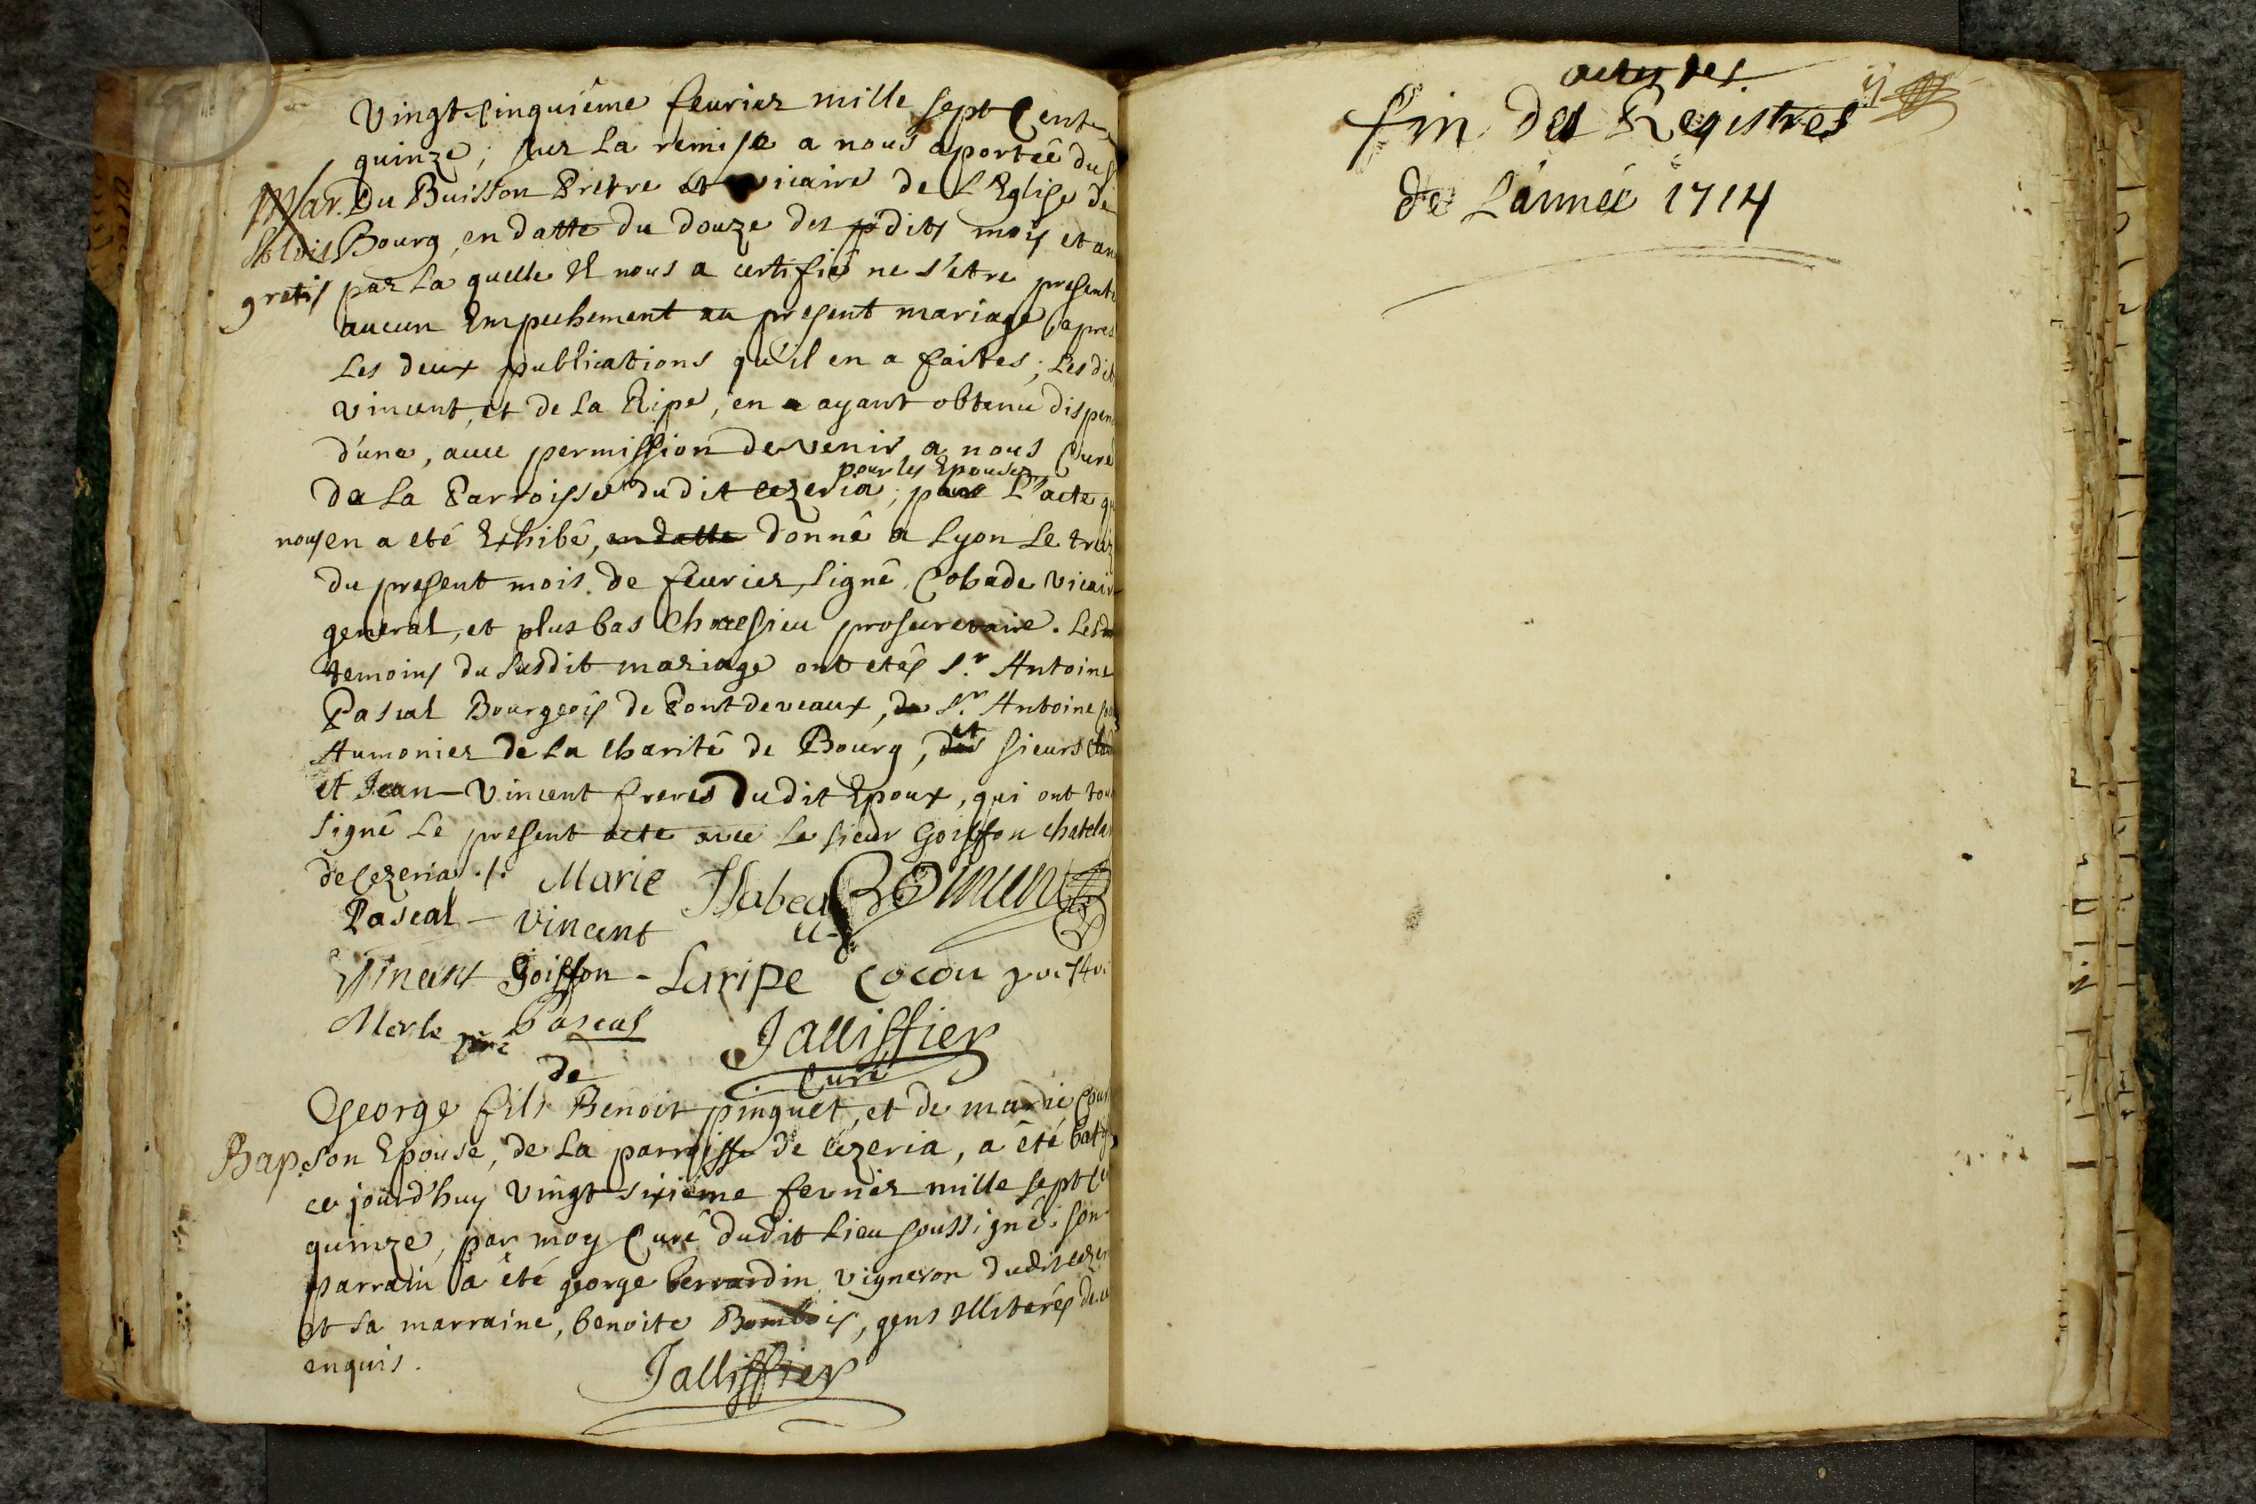 vingt cinquiême feurier mille sept Cent
quinze, sur La remise a nous aportée du
Mar. Du Buisson Pretre et vicaire de L'Eglise de
Bourg, en datte du douze des pdits mois et an
gretis par La quelle Il nous a certifié ne s'etre presenté
aucun Empechement au present mariage, apres
Les deux publications qu'il en a faites; Les dit
vincent, et de La Ripe, en a ayant obtenu dispen
d'une, auec permission de venir a nous Curé
pour les Epouser
de La Parroisse du dit cezeria; L'acte
nous en a eté Exhibé, en datte donné a Lyon Le
du present mois de feurier, signé, Cohade vicair
general, et plus bas prosecretaire. Les
temoins du susdit mariage ont etés Sr. Antoine
Pascal Bourgeois de Pontdeveaux, Sr. Antoine
et
Aumonier de La Charité de Bourg, sieurs
et Jean Vincent freres Dudit Epoux, qui ont tous
signé Le present acte avec Le sieur Goiffon chatela
de Cezeria ./. Marie Isabea
Pascal - Vincent u
Vincent Goiffon - Laripe Cocou
Merle Pascal Jalliffier
Curé
de
George fils Benoit pinguet, et de marie
Bap. son Epouse, de La parroisse de cezeria, a êté bat
ce jourd'huy vingt sixiéme fevrier mille sept
quinze, par moy Curé dudit Lieu soussigné. son
parrain a été george bernardin vigneron dudit cezer
et sa marraine, benoite, gens Illiterés de
enquis.
Jalliffier
actes des
fin des Registres
de L'année 1714